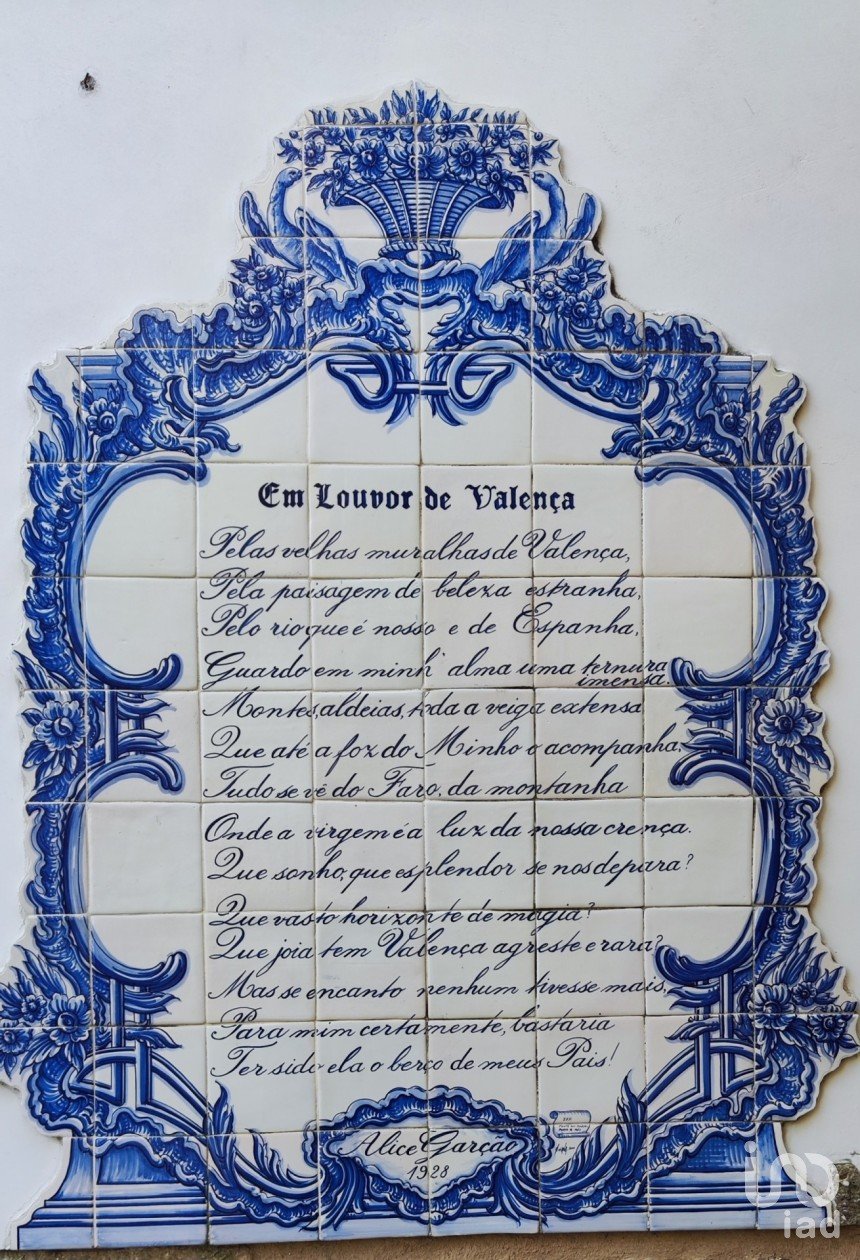 Em Louvor de Valença
Pelas velhas muralhas de Valença,
Pela paisagem de beleza estranha,
Pelo rio que é nosso e de Espanha,
Guardo em minh' alma uma ternura
imensa.
Montes, aldeias, toda a veiga extensa
Que até a foz do Minho o acompanha,
Tudo se vê do Faro, da montanha
Onde a virgem é a luz da nossa crença.
Que sonho, que esplendor se nos depara?
Que vasto horizonte de magia?
Que joia tem Valença agreste e rara?
Mas se encanto nenhum tivesse mais,
Para mim certamente, bastaria
Ter sido ela o berço de meus Pais!
Alice Garção
1928
iad